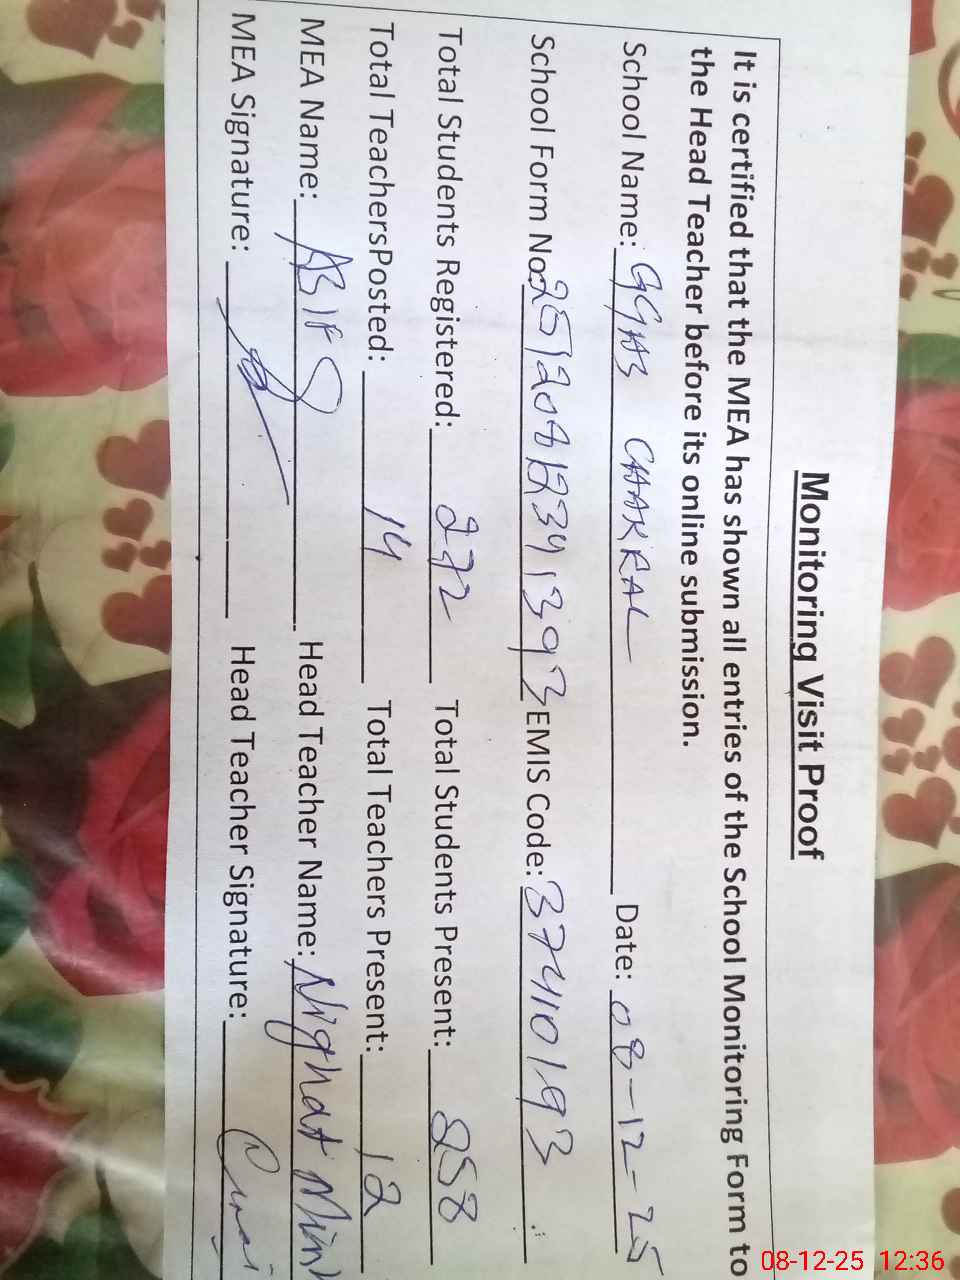 Monitoring Visit Proof
It is certified that the MEA has shown all entries of the School Monitoring Form to
the Head Teacher before its online submission.
School Name: GGHS CHAKRAL Date: 08-12-25
School Form No: 25120812341393 EMIS Code: 37410193
Total Students Registered: 272 Total Students Present: 258
Total TeachersPosted: 14 Total Teachers Present: 12
MEA Name: ASIF Head Teacher Name: Nighat
MEA Signature: Head Teacher Signature:
08-12-25 12:36